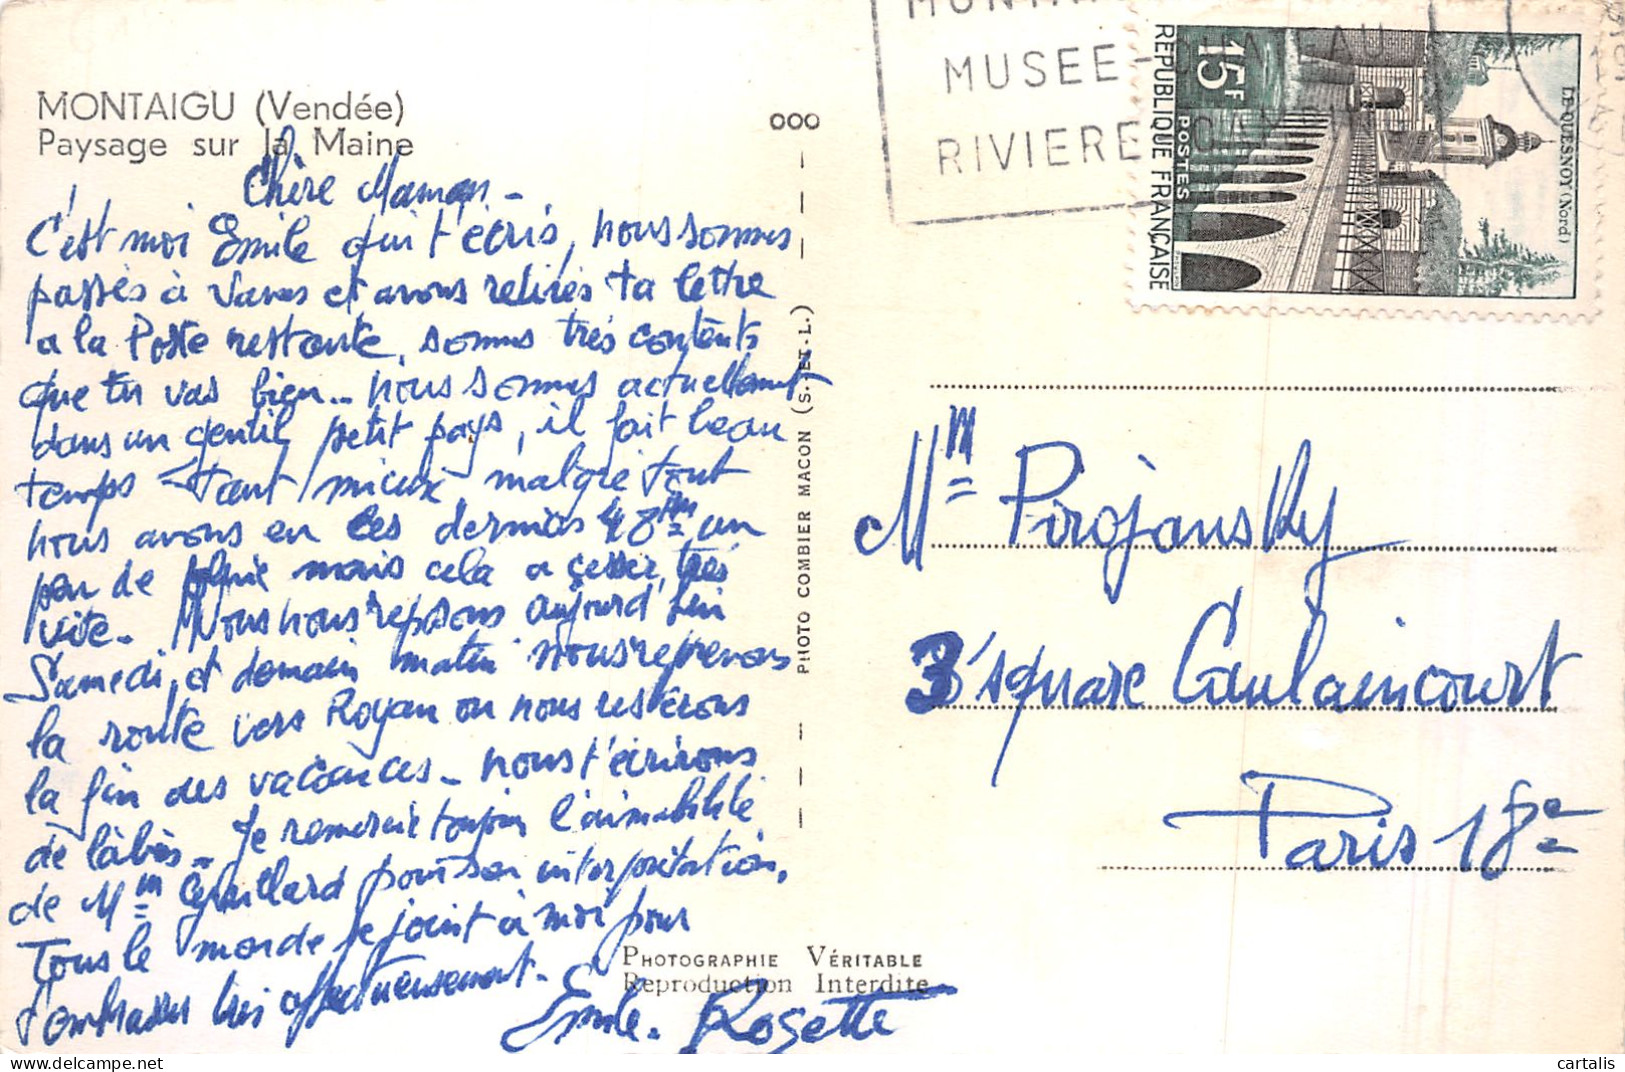 MONTAIGU (Vendée)
Paysage sur la Maine
Chère Maman -
C'est moi Emile qui t'écris, nous sommes
passés à Vanes et avons retirés ta lettre
a la Poste restante, somms très contents
que tu vas bien.. nous sommes actuellement
dans un gentil petit pays, il fait beau
temps tant mieux malgré tout
nous avons eu ces dernies 48h un
peu de pluie mais cela a cesser, très
vite. Nous nous reposons aujourd'hui
Samedi, et demain matin nous reprenons
la route vers Royan ou nous resterons
la fin des vacances - nous t'écrirons
de là bas - Je remercie toujour l'aimabilité
de Mm Guillard pour son interprétation,
Tous le monde se joint à moi pour
t'embrasser très affectueusement.
Emile. Rosette
PHOTOGRAPHIE VÉRITABLE
Reproduction Interdite
000
PHOTO COMBIER MACON (S.-ET-L.)
MUSEE - CHATEAU
RIVIERE
15F
POSTES
REPUBLIQUE FRANÇAISE
LE QUESNOY (Nord)
Mm Pirojansky
3 square Caulaincourt
Paris 18e
cartalis